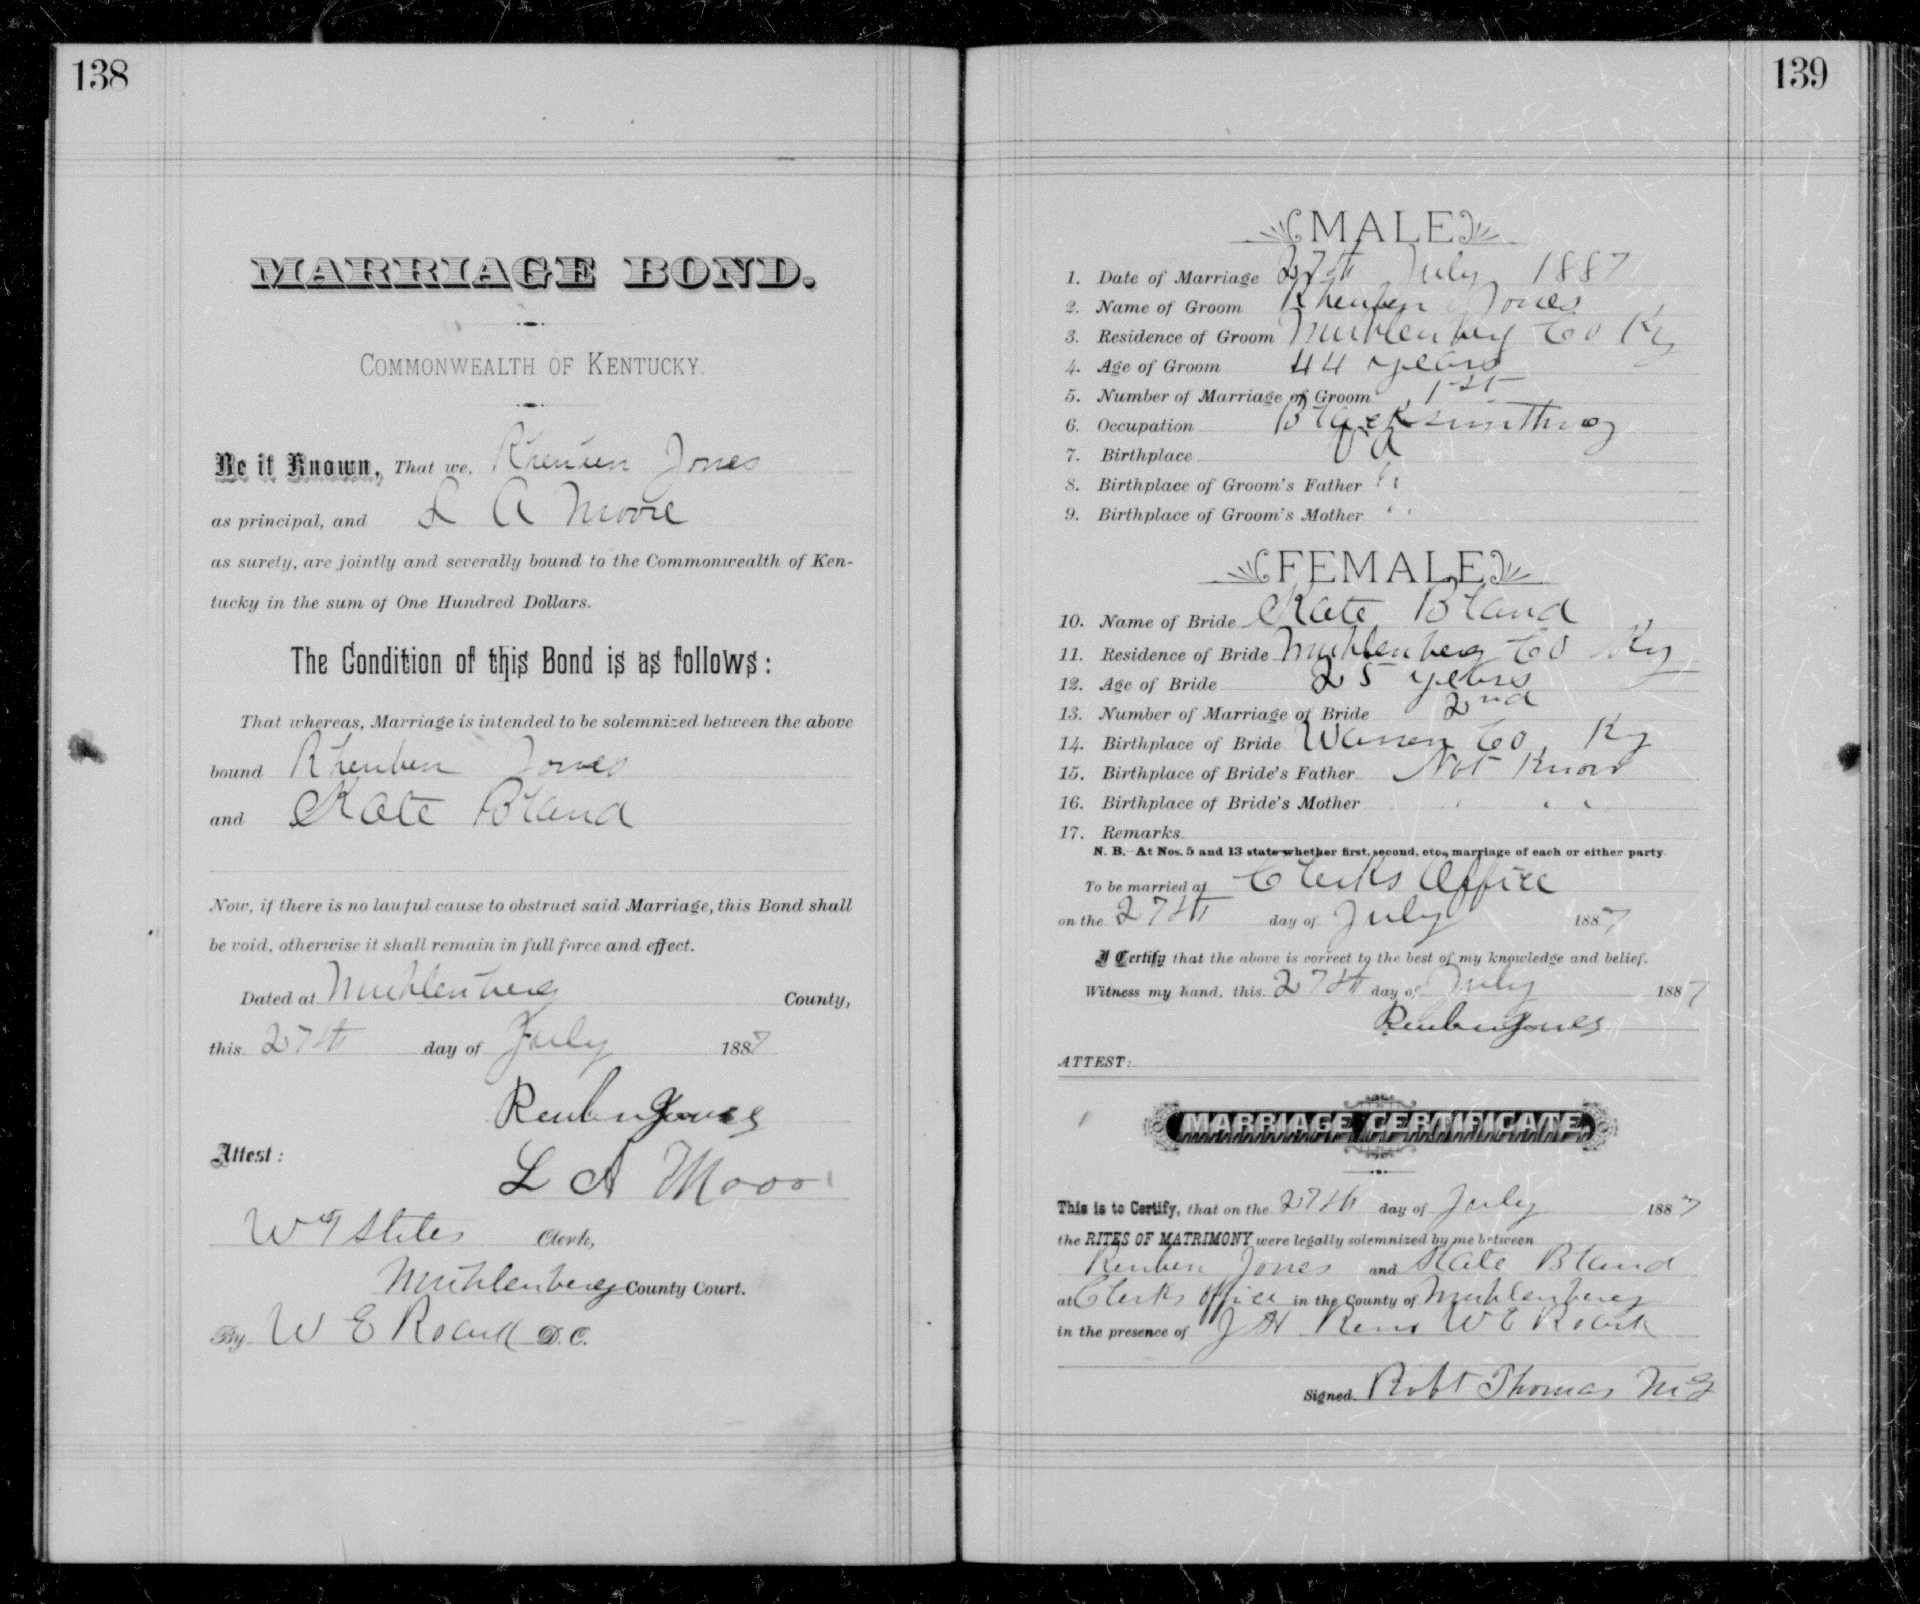 138
MARRIAGE BOND.
COMMONWEALTH OF KENTUCKY.
Be it Known, That we, Rheuben Jones
as principal, and L A Moore
as surety, are jointly and severally bound to the Commonwealth of Ken-
tucky in the sum of One Hundred Dollars.
The Condition of this Bond is as follows:
That whereas, Marriage is intended to be solemnized between the above
bound Rheuben Jones
and Kate Bland
Now, if there is no lawful cause to obstruct said Marriage, this Bond shall
be void, otherwise it shall remain in full force and effect.
Dated at Muhlenberg County,
this 27th day of July 1887
Reuben Jones
Attest:
L A Moore
W T Stiles Clerk,
Muhlenberg County Court.
By W E Roark D. C.
139
MALE
1. Date of Marriage 27th July 1887
2. Name of Groom Rheuben Jones
3. Residence of Groom Muhlenberg Co Ky
4. Age of Groom 44 years
5. Number of Marriage of Groom 1st
6. Occupation Blacksmithing
7. Birthplace Va
8. Birthplace of Groom's Father " "
9. Birthplace of Groom's Mother " "
FEMALE
10. Name of Bride Kate Bland
11. Residence of Bride Muhlenberg Co Ky
12. Age of Bride 25 years
13. Number of Marriage of Bride 2nd
14. Birthplace of Bride Warren Co, Ky
15. Birthplace of Bride's Father Not Know
16. Birthplace of Bride's Mother " "
17. Remarks
N. B.—At Nos. 5 and 13 state whether first, second, etc., marriage of each or either party.
To be married at Clerks Office
on the 27th day of July 1887
I Certify that the above is correct to the best of my knowledge and belief.
Witness my hand, this 27th day of July 1887
Reuben Jones
ATTEST:
MARRIAGE CERTIFICATE.
This is to Certify, that on the 27th day of July 1887
the RITES OF MATRIMONY were legally solemnized by me between
Reuben Jones and Kate Bland
at Clerks Office in the County of Muhlenberg
in the presence of J H Reno W E Roark
Signed. Robt Thomas MG